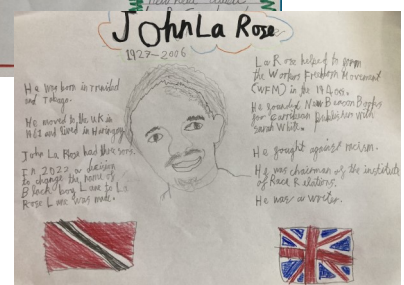 John La Rose
1927-2006
He was born in Trinidad
and Tobago.
He moved to the UK in
1961 and lived in Haringey
John La Rose had three sons.
In 2022 a decision
to change the name of
Black boy Lane to La
Rose Lane was made.
La Rose helped to form
the Workers Freedom Movement
(WFM) in the 1940s.
He founded New Beacon Books
for Carribean Publisher with
Sarah White.
He fought against racism.
He was chairman of the institute
of Race Relations.
He was a writer.